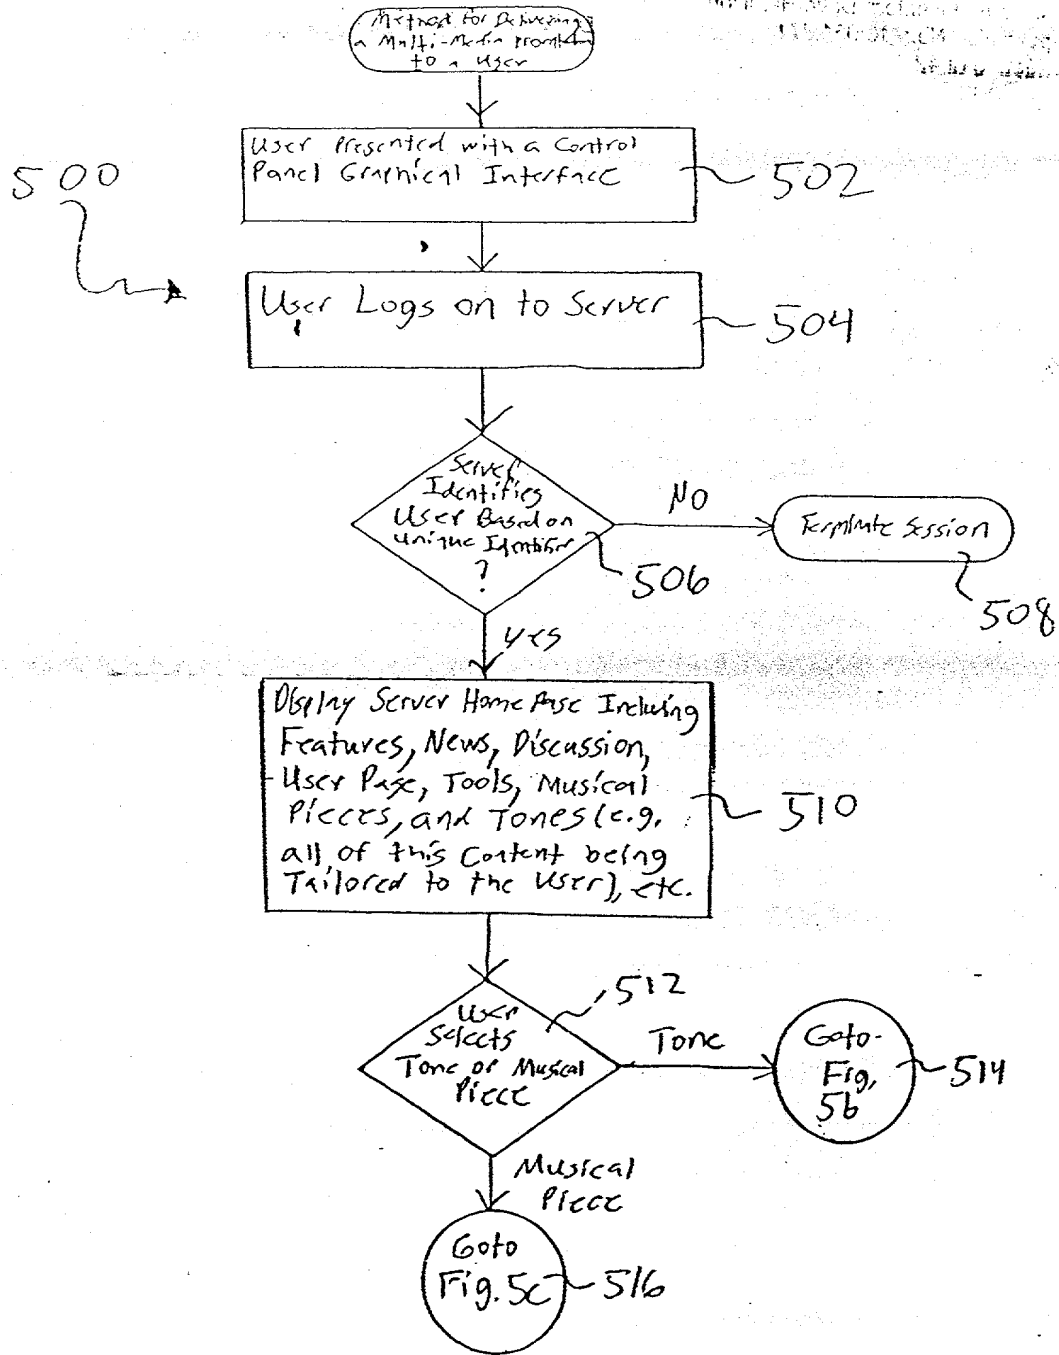 Method for Delivering
a Multi-Media Promotion
to a User
User Presented with a Control
Panel Graphical Interface
502
500
User Logs on to Server
504
Server
Identifies
User Based on
Unique Identifier
?
506
NO
Terminate Session
508
Yes
Display Server Home Page Incluing
Features, News, Discussion,
User Page, Tools, Musical
Pieces, and Tones (e.g.
all of this Content being
Tailored to the User), etc.
510
User
Selects
Tone or Musical
Piece
512
Tone
Goto
Fig.
5b
514
Musical
Piece
Goto
Fig. 5c
516